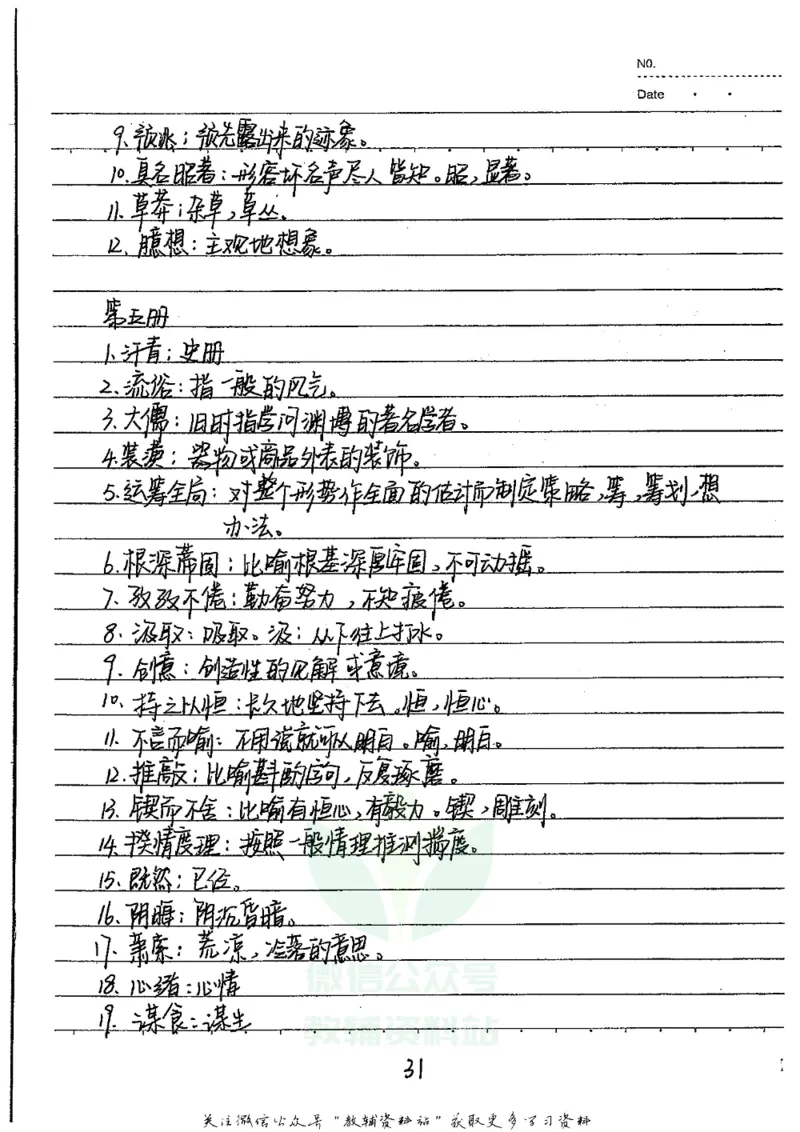 NO.
Date
9. 预兆：预先露出来的迹象。
10. 臭名昭著：形容坏名声尽人皆知。昭，显著。
11. 草莽：杂草，草丛。
12. 臆想：主观地想象。
第五册
1. 汗青：史册
2. 流俗：指一般的风气。
3. 大儒：旧时指学问渊博的著名学者。
4. 装潢：器物或商品外表的装饰。
5. 运筹全局：对整个形势作全面的估计而制定策略，筹，筹划，想
办法。
6. 根深蒂固：比喻根基深厚牢固，不可动摇。
7. 孜孜不倦：勤奋努力，不知疲倦。
8. 汲取：吸取。汲：从下往上打水。
9. 创意：创造性的见解或意境。
10. 持之以恒：长久地坚持下去。恒，恒心。
11. 不言而喻：不用说就可以明白。喻，明白。
12. 推敲：比喻斟酌字句，反复琢磨。
13. 锲而不舍：比喻有恒心，有毅力。锲，雕刻。
14. 揆情度理：按照一般情理推测揣度。
15. 既然：已经。
16. 阴晦：阴沉昏暗。
17. 萧索：荒凉，冷落的意思。
18. 心绪：心情
19. 谋食：谋生
微信公众号
教辅资料站
31
关注微信公众号"教辅资料站"获取更多学习资料